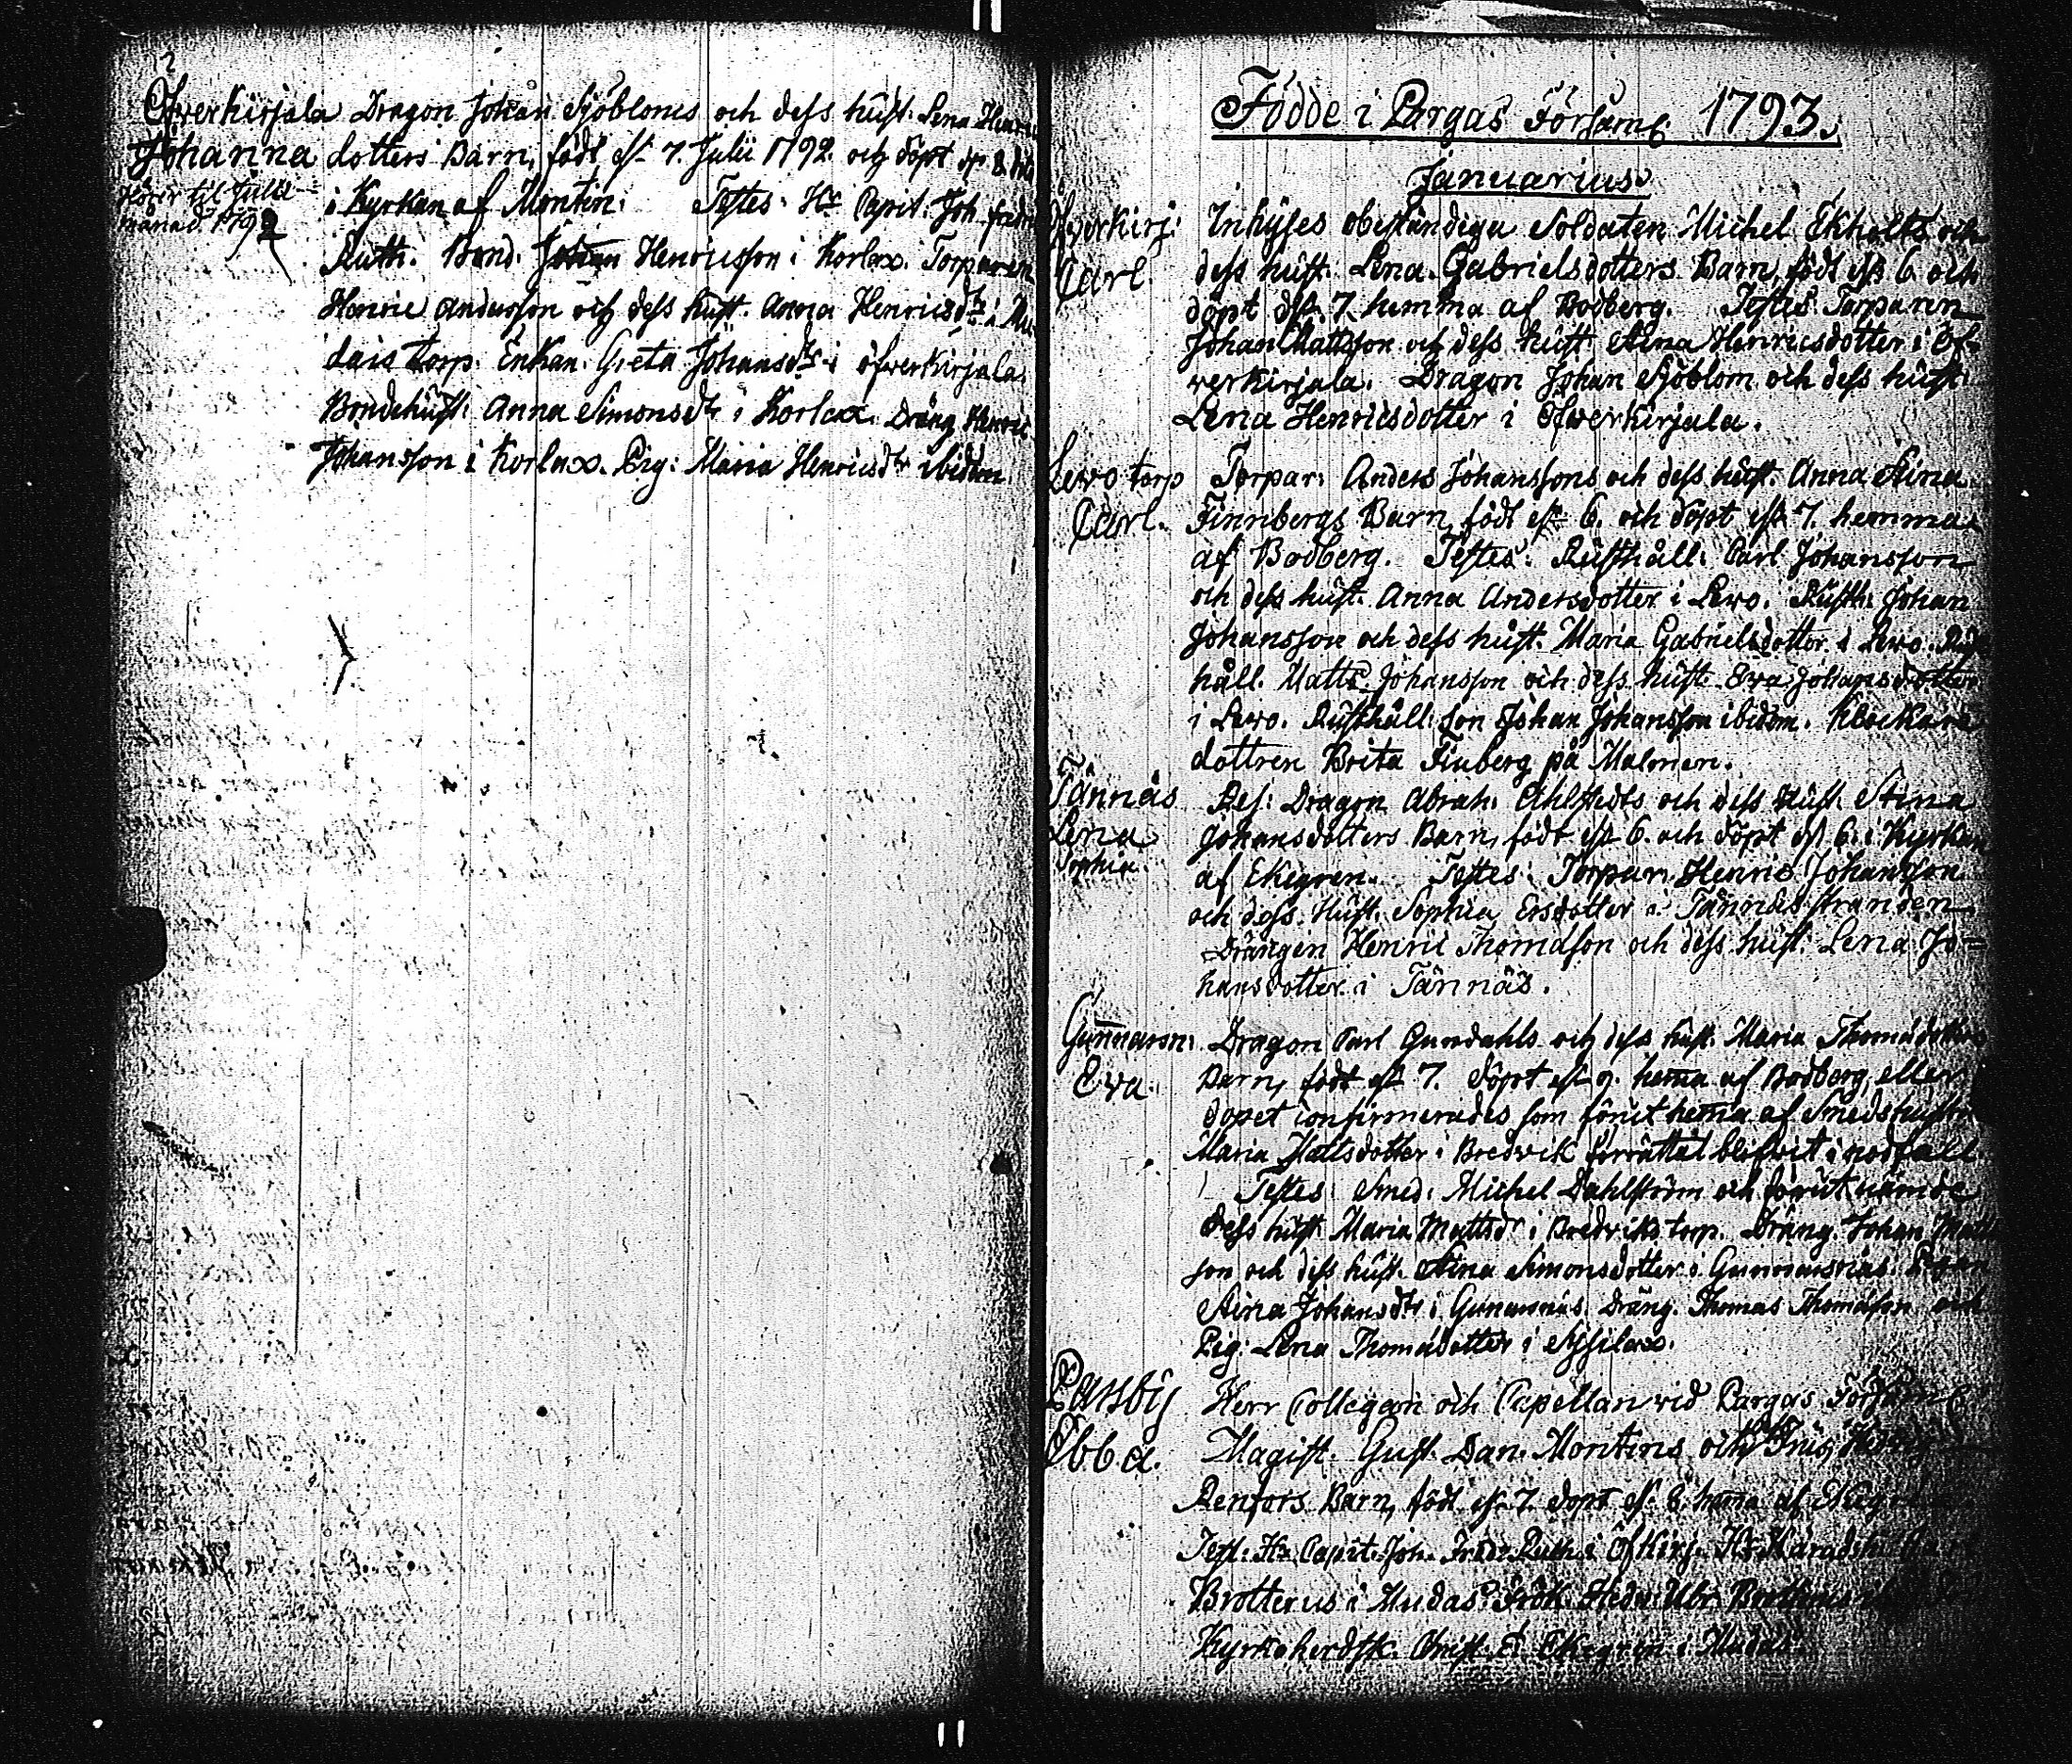 Öfverkirjala Dragon Johan Sjöbloms och dess hust. Lena Henric
Johanna dotters Barn, födt d. 7. Julii 1792. och döpt d. 8 dito
hörer til Julii månad 1792
i Kyrkan af Montin. Testes: Hr Capit. Joh. Fredr.
Ruth. Bond. Johan Henricsson i Korlax. Torparen
Henric Andersson och dess hust. Anna Henricsdtr i Mu
dais torp. Enkan Greta Johansdtr i öfverkirjala.
Bondehust. Anna Simonsdtr i Korlax. Dräng Henric
Johansson i Korlax. Pig: Maria Henricsdtr ibidem.
Födde i Pargas Församl. 1793.
Januarius.
Öfverkirj: Inhyses obeständiga Soldaten Michel Ekholts och
Carl. dess hust. Lena Gabrielsdotters Barn, födt d. 6 och
döpt d. 7. hemma af Bodberg. Testes: Torparen
Johan Mattsson och dess hust Stina Henricsdotter i Öf-
verkirjala. Dragon Johan Sjöblom och dess hust
Lena Henricsdotter i Öfwerkirjala.
Lewo torp Torpar: Anders Johanssons och dess hust. Anna Stina
Carl. Finnbergs Barn, födt d. 6. och döpt d. 7. hemma
af Bodberg. Testes: Rusthåll: Carl Johansson
och dess hust. Anna Andersdotter i Lewo. Rusth: Johan
Johansson och dess hust. Maria Gabrielsdotter i Lewo. Rust
håll. Matts Johansson och dess hust Eva Johansdotter
i Lewo. Rusthåll: son Johan Johansson ibidem. Klockare
dottren Brita Finberg på Malmen.
Tännäs Res: Dragon Abrah. Ahlstedts och dess Hust. Stina
Lena Johansdotters Barn, födt d. 6. och döpt d. 6. i Kyrkan
Sophia. af Ekegren. Testes: Torpar. Henric Johansson
och dess Hust. Sophia Ersdotter i Tännäs stranden
Drängen Henric Thomasson och dess hust. Lena Jo=
hansdotter i Tännäs.
Gunnarn: Dragon Carl Gundahls och dess hust. Maria Thomasdotters
Eva. Barn, födt d. 7. döpt d. 9. hema af Bodberg, eller
dopet confirmerades som förut hema af Smedshustr
Maria Mattsdotter i Bredvik förrättat blifvit i nödfall
Testes: Smed: Michel Dahlström och förut nämde
dess hust. Maria Mattsdr i Bredviks torp. Dräng. Johan Matts
son och dess hust. Stina Simonsdotter i Gunnarsnäs. Pigan
Stina Johansdtr i Gunnarsnäs. Dräng. Thomas Thomasson och
Pig: Lena Thomasdotter i Attsilax.
Parsby Herr Collegan och Capellan vid Pargas Församl
Ebba. Magist. Gust. Dan. Montins och
Renfors Barn, födt d. 7. döpt d. 8. hema af Ekegren
Test: Hr Capit. Joh. Fredr Ruth i Öfkirj. Hr Häradsh
Brotterus i Mudais. Fröк. Hedv. Ulr
Kyrkoherdsk. Christ. Ekegren i Mudais